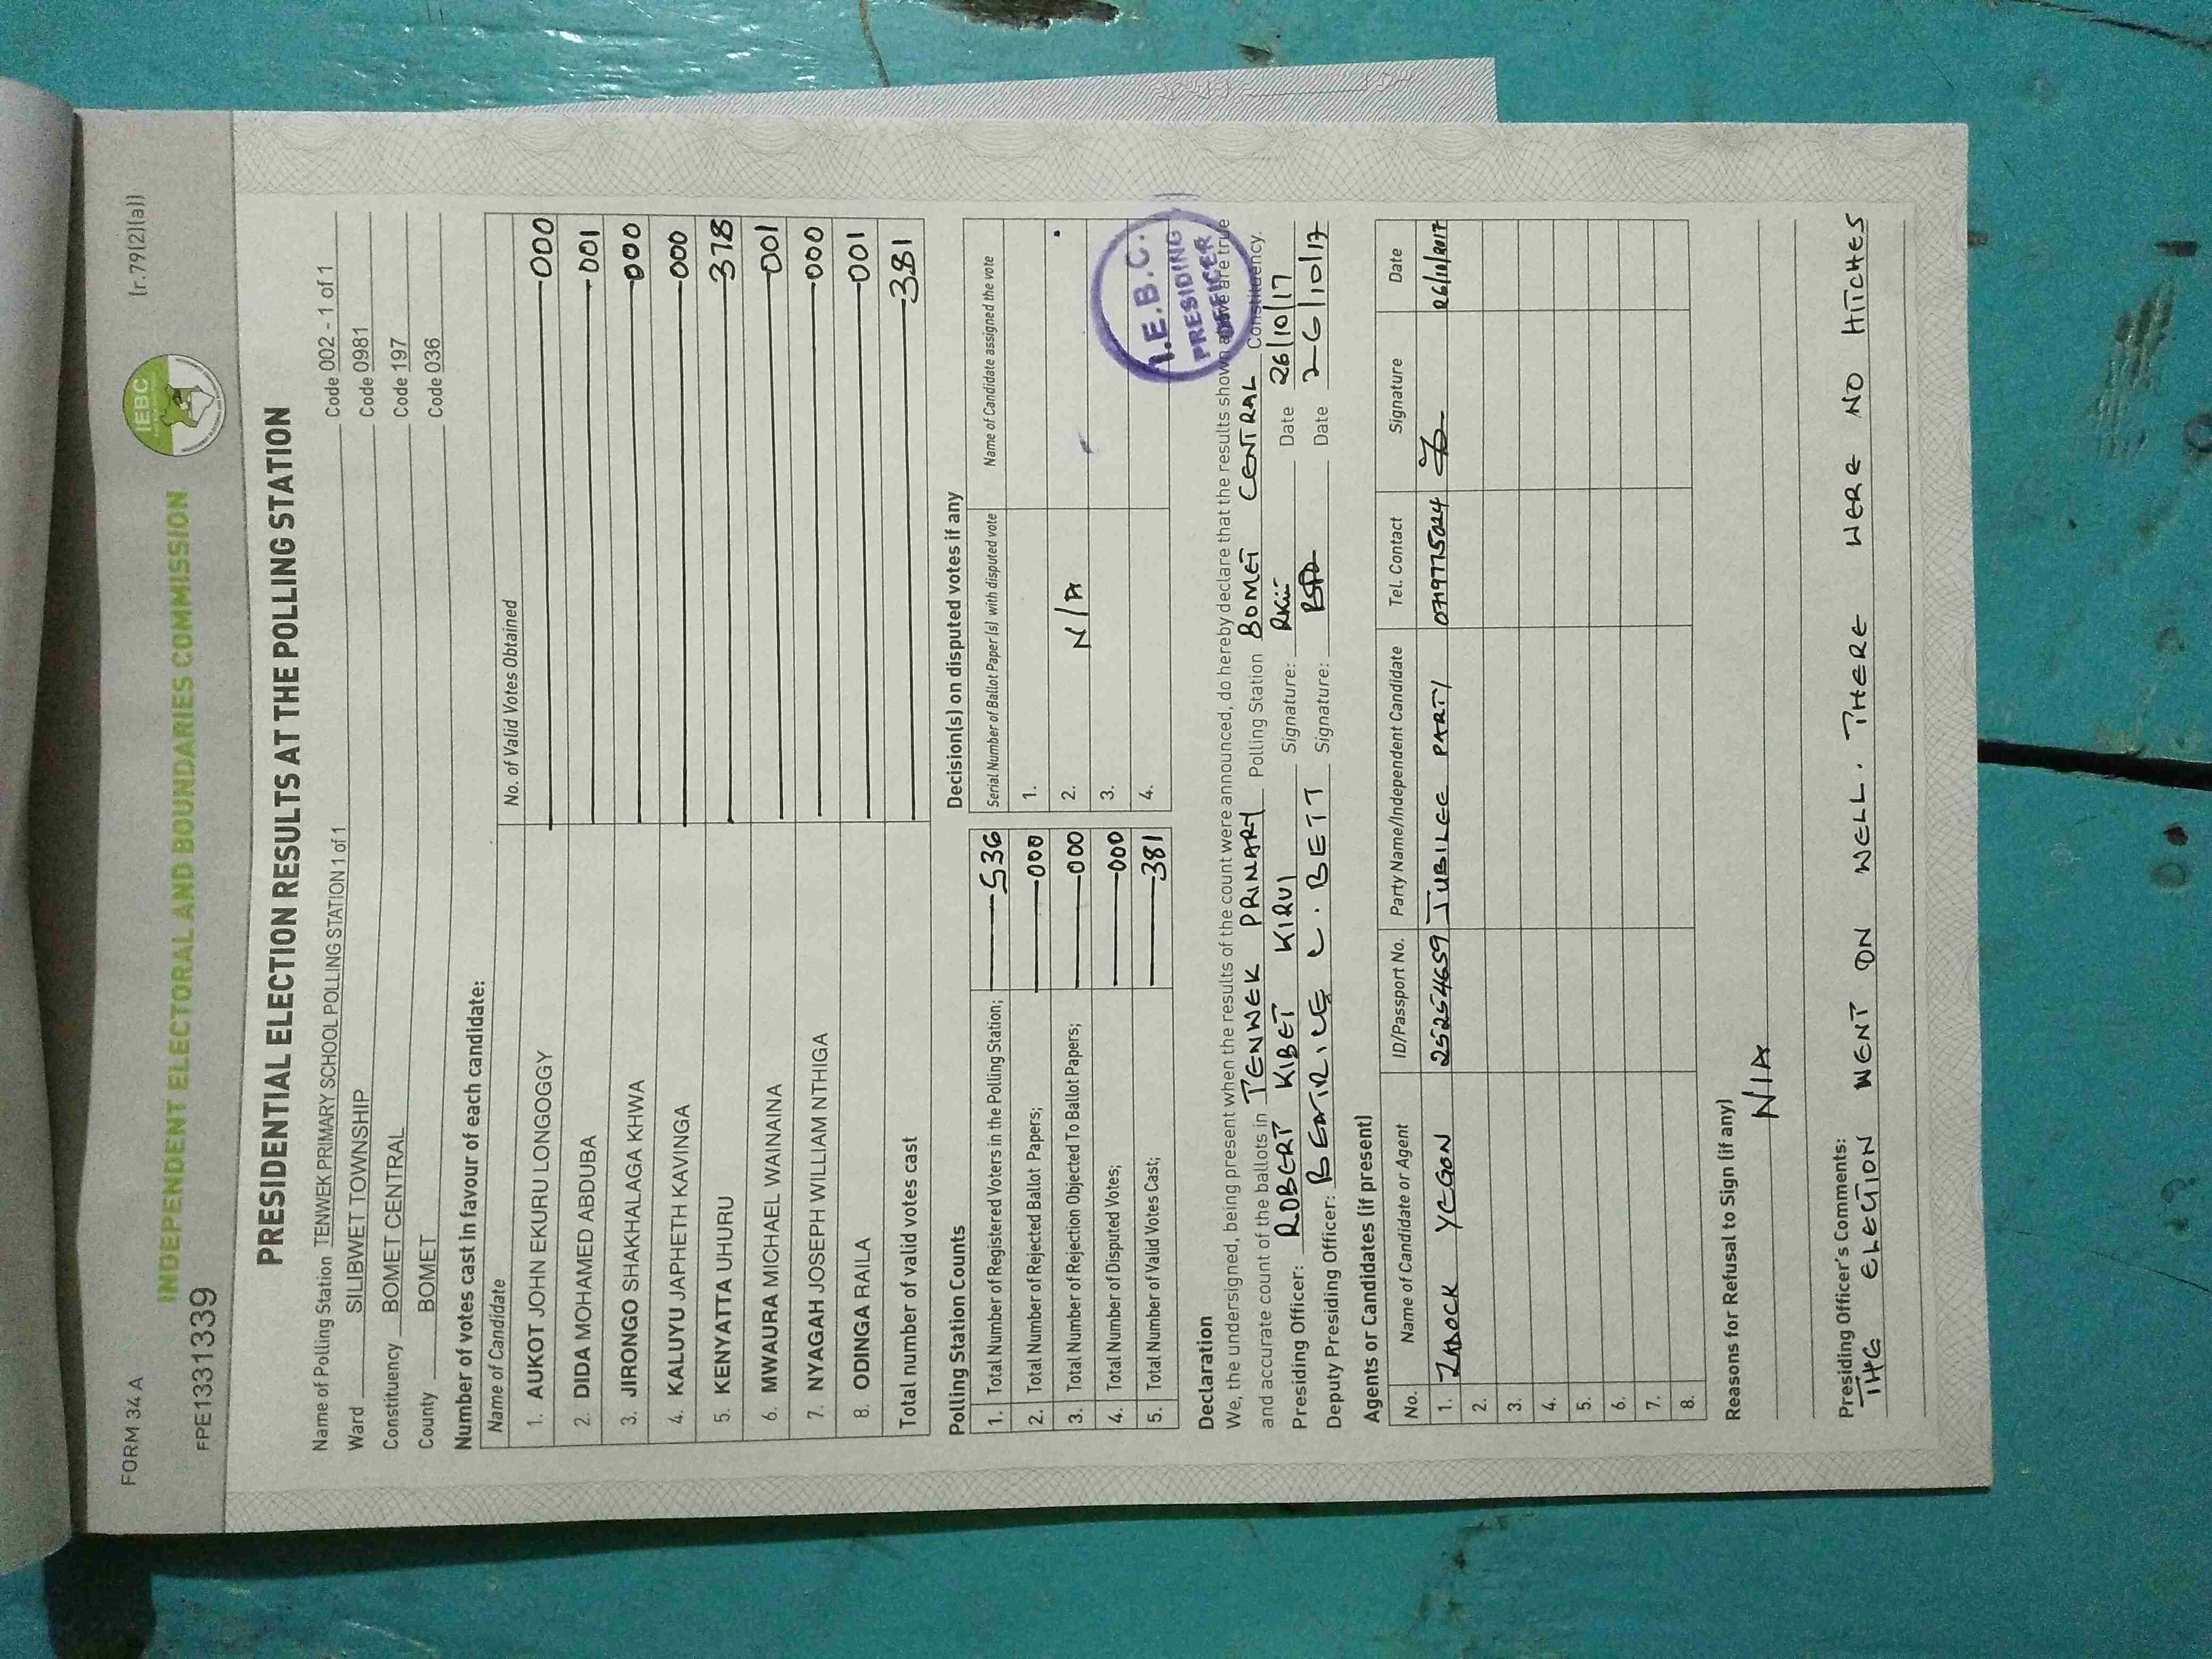 FORM 34 A
(r.79(2)(a))
IEBC
INDEPENDENT ELECTORAL AND BOUNDARIES COMMISSION
FPE1331339
PRESIDENTIAL ELECTION RESULTS AT THE POLLING STATION
Name of Polling Station TENWEK PRIMARY SCHOOL POLLING STATION 1 of 1 Code 002 - 1 of 1
Ward SILIBWET TOWNSHIP Code 0981
Constituency BOMET CENTRAL Code 197
County BOMET Code 036
Number of votes cast in favour of each candidate:
Name of Candidate No. of Valid Votes Obtained
1. AUKOT JOHN EKURU LONGOGGY 000
2. DIDA MOHAMED ABDUBA 001
3. JIRONGO SHAKHALAGA KHWA 000
4. KALUYU JAPHETH KAVINGA 000
5. KENYATTA UHURU 378
6. MWAURA MICHAEL WAINAINA 001
7. NYAGAH JOSEPH WILLIAM NTHIGA 000
8. ODINGA RAILA 001
Total number of valid votes cast 381
Polling Station Counts
1. Total Number of Registered Voters in the Polling Station; 536
2. Total Number of Rejected Ballot Papers; 000
3. Total Number of Rejection Objected To Ballot Papers; 000
4. Total Number of Disputed Votes; 000
5. Total Number of Valid Votes Cast; 381
Decision(s) on disputed votes if any
Serial Number of Ballot Paper(s) with disputed vote Name of Candidate assigned the vote
1.
2. N/A
3.
4.
I.E.B.C.
PRESIDING
OFFICER
Declaration
We, the undersigned, being present when the results of the count were announced, do hereby declare that the results shown above are true
and accurate count of the ballots in TENWEK PRIMARY Polling Station BOMET CENTRAL Constituency.
Presiding Officer: ROBERT KIBET KIRUI Signature: Date 26/10/17
Deputy Presiding Officer: BEATRICE C. BETT Signature: Date 26/10/17
Agents or Candidates (if present)
No. Name of Candidate or Agent ID/Passport No. Party Name/Independent Candidate Tel. Contact Signature Date
1. ZADOCK YEGON 25254659 JUBILEE PARTY 0719775024 26/10/2017
2.
3.
4.
5.
6.
7.
8.
Reasons for Refusal to Sign (if any)
N/A
Presiding Officer's Comments:
THE ELECTION WENT ON WELL. THERE WERE NO HITCHES